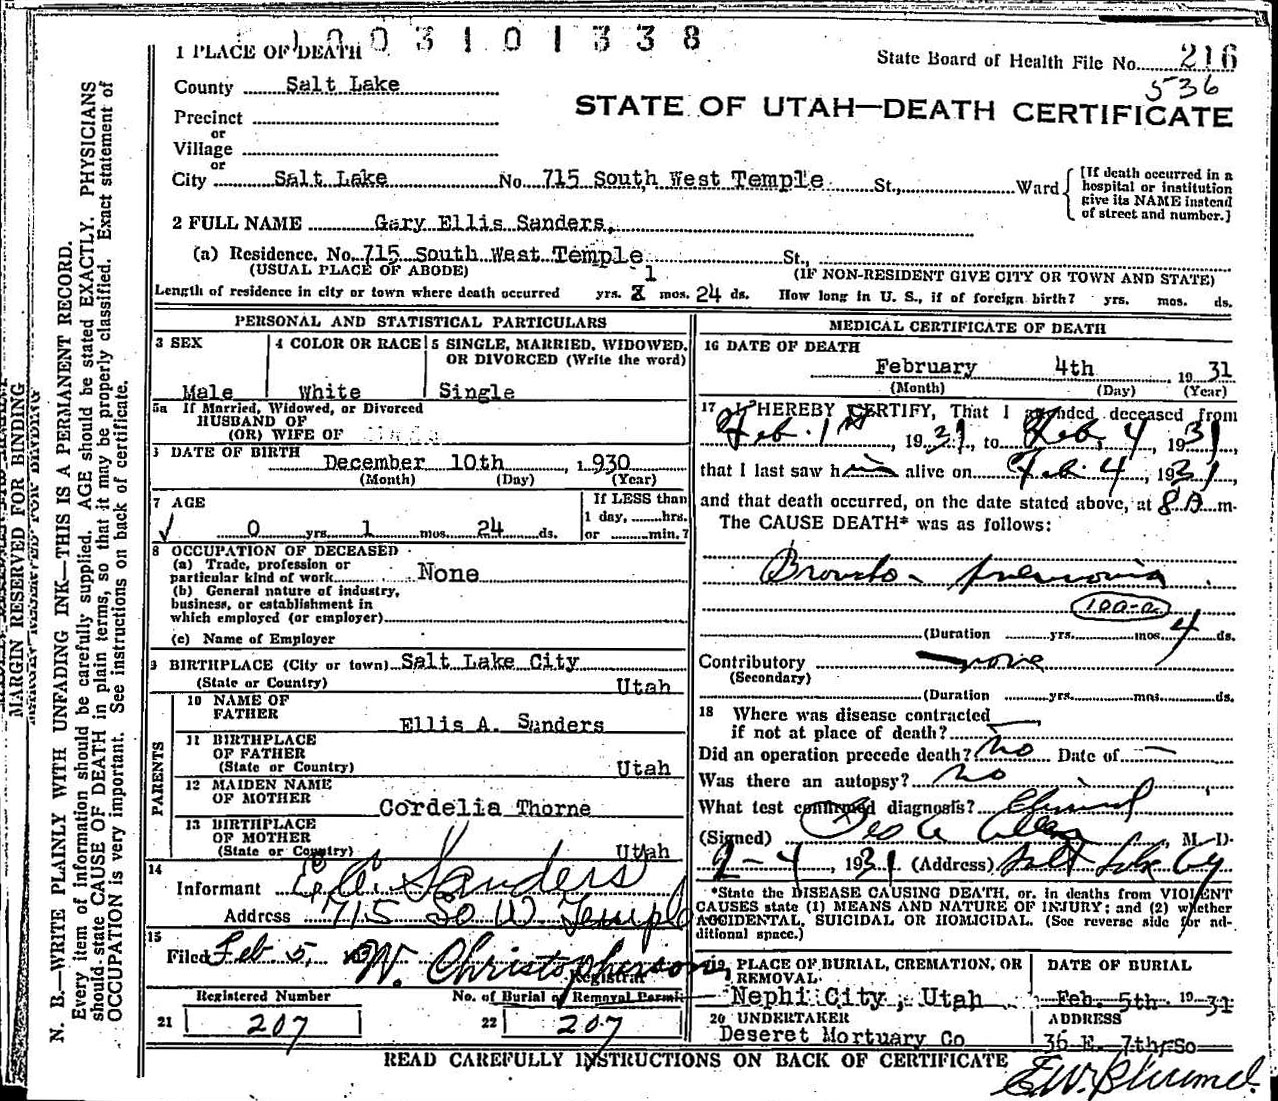 1003101338
1 PLACE OF DEATH
State Board of Health File No. 216
536
County Salt Lake
STATE OF UTAH—DEATH CERTIFICATE
Precinct
or
Village
or
City Salt Lake No. 715 South West Temple St., Ward
[If death occurred in a hospital or institution give its NAME instead of street and number.]
2 FULL NAME Gary Ellis Sanders,
(a) Residence. No. 715 South West Temple St.,
(USUAL PLACE OF ABODE) (IF NON-RESIDENT GIVE CITY OR TOWN AND STATE)
1
Length of residence in city or town where death occurred yrs. mos. 24 ds. How long in U. S., if of foreign birth? yrs. mos. ds.
PERSONAL AND STATISTICAL PARTICULARS
3 SEX
Male
4 COLOR OR RACE
White
5 SINGLE, MARRIED, WIDOWED, OR DIVORCED (Write the word)
Single
5a If Married, Widowed, or Divorced
HUSBAND OF
(OR) WIFE OF
DATE OF BIRTH
December 10th, 1930
(Month) (Day) (Year)
7 AGE
0 yrs. 1 mos. 24 ds.
If LESS than
1 day, hrs.
or min.?
8 OCCUPATION OF DECEASED
(a) Trade, profession or
particular kind of work None
(b) General nature of industry,
business, or establishment in
which employed (or employer)
(c) Name of Employer
9 BIRTHPLACE (City or town) Salt Lake City
(State or Country) Utah
PARENTS
10 NAME OF
FATHER Ellis A. Sanders
11 BIRTHPLACE
OF FATHER
(State or Country) Utah
12 MAIDEN NAME
OF MOTHER Cordelia Thorne
13 BIRTHPLACE
OF MOTHER
(State or Country) Utah
14
Informant E. A. Sanders
Address 715 So W. Temple
15
Filed Feb 5, W. Christopherson
Registrar
Registered Number No. of Burial or Removal Permit
21 207 22 207
MEDICAL CERTIFICATE OF DEATH
16 DATE OF DEATH
February 4th, 1931
(Month) (Day) (Year)
17 I HEREBY CERTIFY, That I attended deceased from
Feb. 1st, 1931, to Feb. 4, 1931
that I last saw him alive on Feb. 4, 1931,
and that death occurred, on the date stated above, at 8 A m.
The CAUSE DEATH* was as follows:
Broncho-pneumonia
100-a
(Duration yrs. mos. 4 ds.
Contributory none
(Secondary)
(Duration yrs. mos. ds.
18 Where was disease contracted
if not at place of death?
Did an operation precede death? No Date of —
Was there an autopsy? No
What test confirmed diagnosis? Clinical
(Signed) M. D.
2-4, 1931 (Address) Salt Lake City
*State the DISEASE CAUSING DEATH, or, in deaths from VIOLENT
CAUSES state (1) MEANS AND NATURE OF INJURY; and (2) whether
ACCIDENTAL, SUICIDAL OR HOMICIDAL. (See reverse side for ad-
ditional space.)
19 PLACE OF BURIAL, CREMATION, OR
REMOVAL
Nephi City, Utah
DATE OF BURIAL
Feb. 5th 1931
20 UNDERTAKER
Deseret Mortuary Co
ADDRESS
36 E. 7th So
READ CAREFULLY INSTRUCTIONS ON BACK OF CERTIFICATE
MARGIN RESERVED FOR BINDING
N. B.—WRITE PLAINLY WITH UNFADING INK—THIS IS A PERMANENT RECORD.
Every item of information should be carefully supplied. AGE should be stated EXACTLY. PHYSICIANS
should state CAUSE OF DEATH in plain terms, so that it may be properly classified. Exact statement of
OCCUPATION is very important. See instructions on back of certificate.